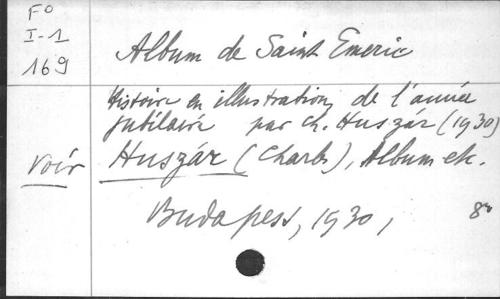 F°
I-1
169
Album de Saint Emeric
Histoire en illustrations de l'année
jubilaire par Ch. Huszár (1930)
voir Huszár (Charles), Album etc.
Budapest, 1930, 8°